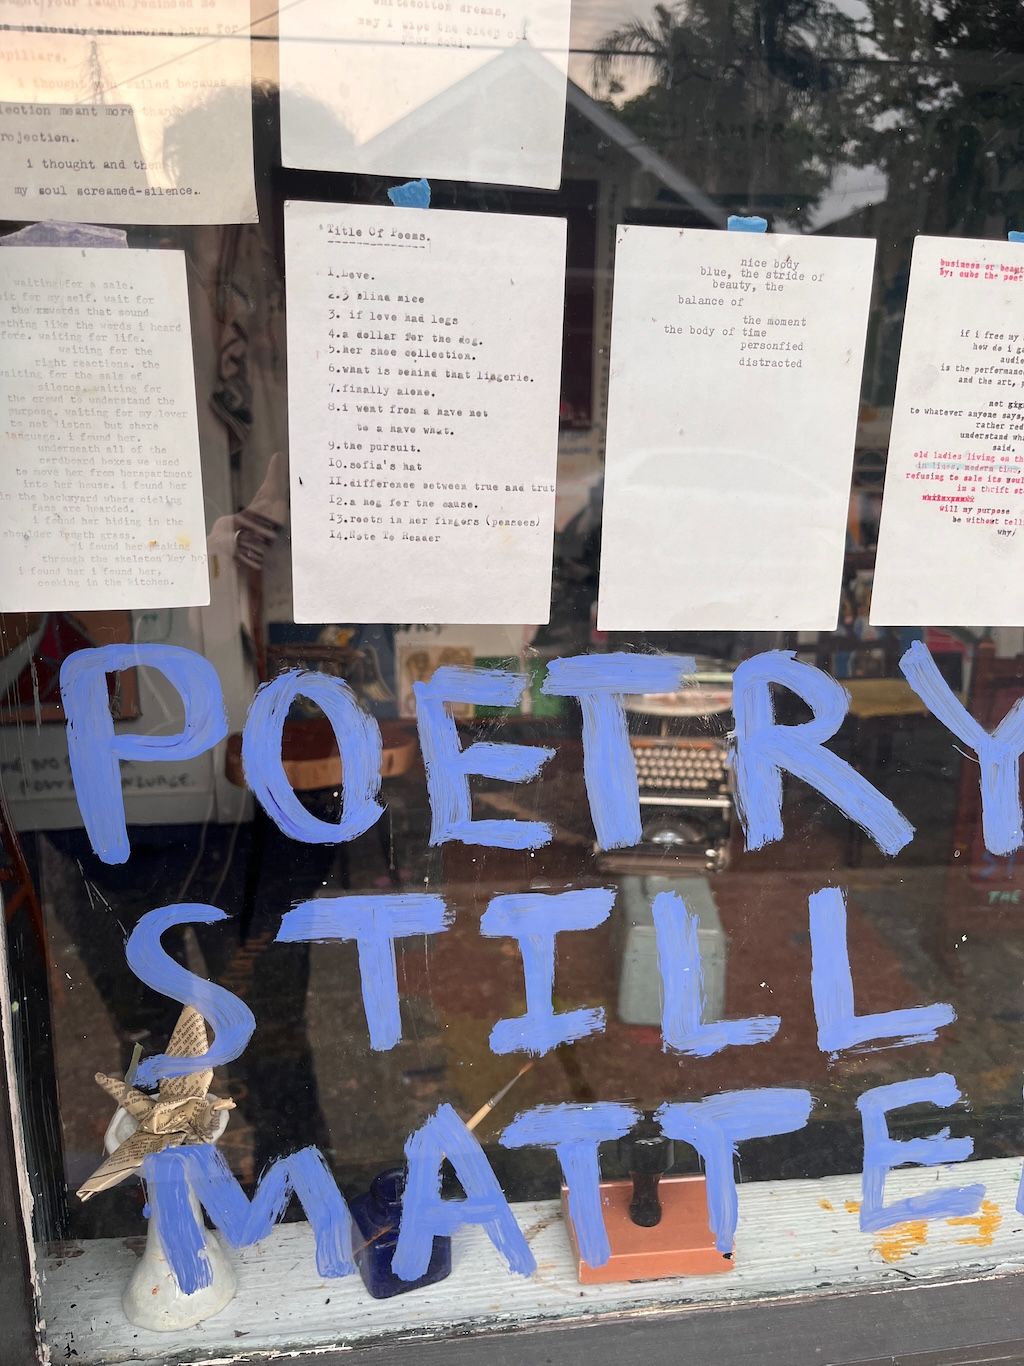 my soul screamed-silence.
i thought and then
rojection.
lection meant more than
i thought you smiled because
pillars.
whitecotton dreams,
may i wipe the sleep off
your soul.
waiting for a sale.
it for my self. wait for
the rewards that sound
thing like the words i heard
fore. waiting for life.
waiting for the
right reactions. the
waiting for the sale of
silence. waiting for
the crowd to understand the
purpose. waiting for my lover
to not listen but share
language. i found her.
underneath all of the
cardboard boxes we used
to move her from herapartment
into her house. i found her
in the backyard where cieling
fans are hoarded.
i found her hiding in the
shoulder length grass.
i found her peaking
through the skeleton key ho
i found her i found her,
cooking in the kitchen.
Title Of Poems.
1.Love.
2.3 blind mice
3. if love had legs
4.a dollar for the dog.
5.her shoe collection.
6.what is behind that lingerie.
7.finally alone.
8.i went from a have not
to a have what.
9.the pursuit.
10.sofia's hat
11.difference between true and trut
12.a hog for the cause.
13.roots in her fingers (pensees)
14.Note To Reader
nice body
blue, the stride of
beauty, the
balance of
the moment
the body of time
personfied
distracted
business or beaut
by; cubs the poet
if i free my
how do i ga
audie
is the performanc
and the art,
not gig
to whatever anyone says,
rather red
understand wha
said.
old ladies living on th
in lines, modern time,
refusing to sale its soul
in a thrift st
will my purpose
be without tell
why/
POETRY
STILL
MATTE